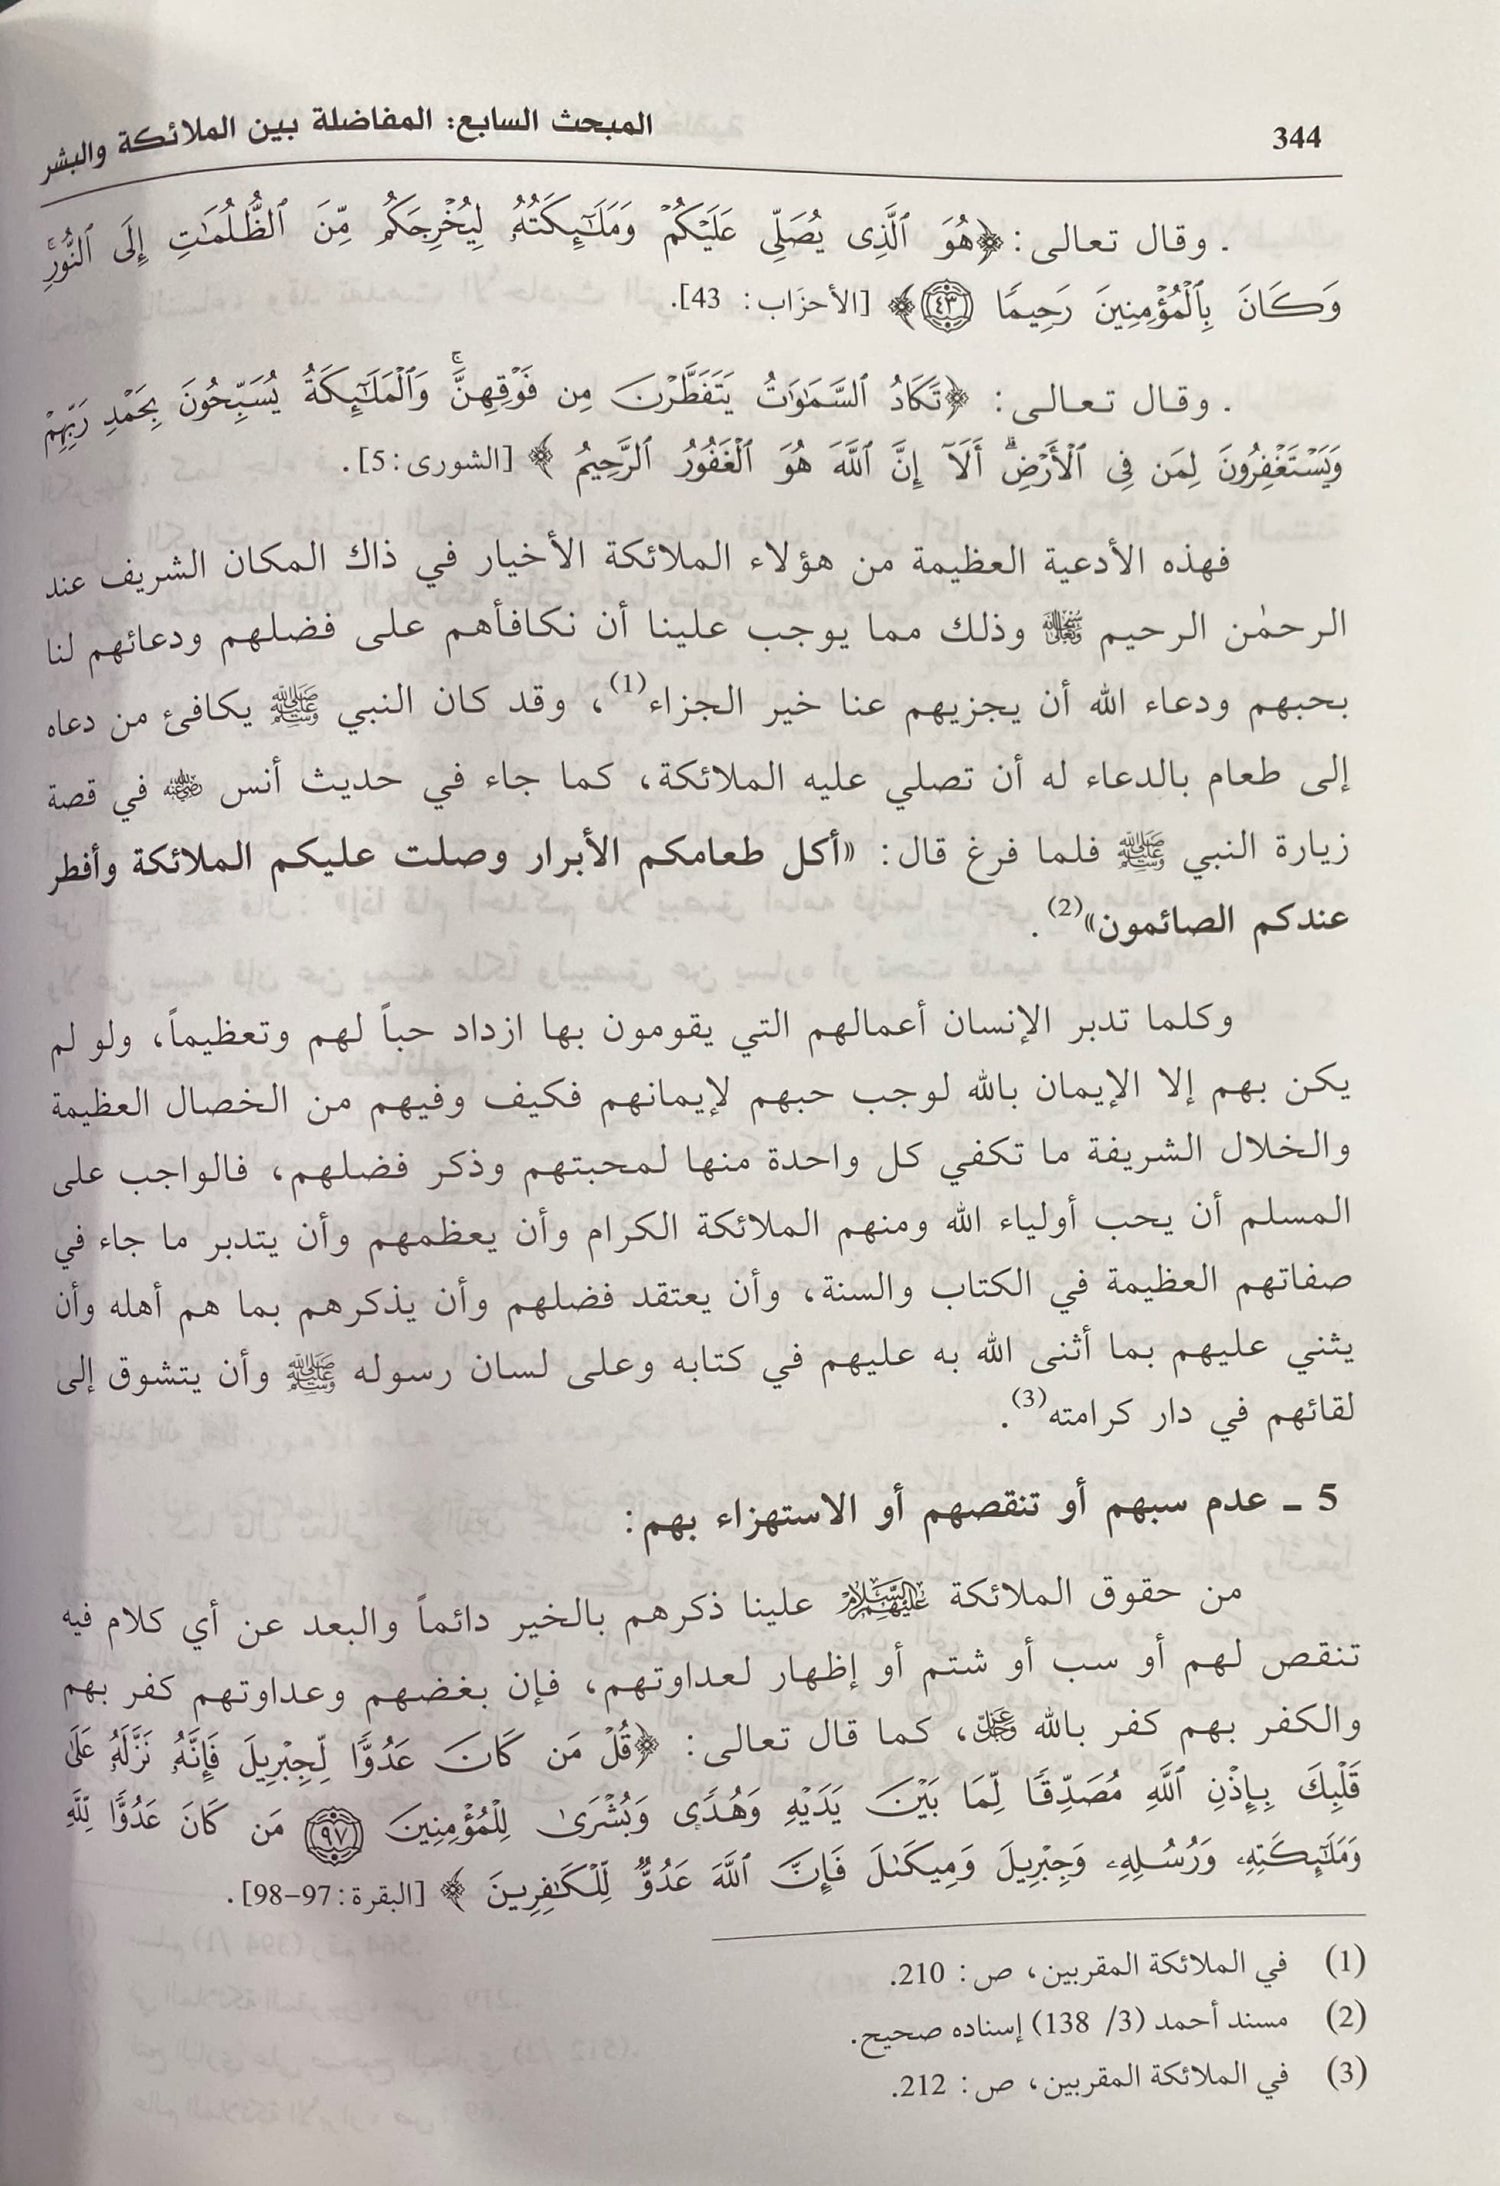 344
المبحث السابع: المفاضلة بين الملائكة والبشر
. وقال تعالى: ﴿هُوَ ٱلَّذِى يُصَلِّى عَلَيْكُمْ وَمَلَٰٓئِكَتُهُۥ لِيُخْرِجَكُم مِّنَ ٱلظُّلُمَٰتِ إِلَى ٱلنُّورِ ۚ
وَكَانَ بِٱلْمُؤْمِنِينَ رَحِيمًا ٤٣﴾ [الأحزَاب: 43].
. وقال تعالى: ﴿تَكَادُ ٱلسَّمَٰوَٰتُ يَتَفَطَّرْنَ مِن فَوْقِهِنَّ ۚ وَٱلْمَلَٰٓئِكَةُ يُسَبِّحُونَ بِحَمْدِ رَبِّهِمْ
وَيَسْتَغْفِرُونَ لِمَن فِى ٱلْأَرْضِ ۗ أَلَآ إِنَّ ٱللَّهَ هُوَ ٱلْغَفُورُ ٱلرَّحِيمُ﴾ [الشورى: 5].
فهذه الأدعية العظيمة من هؤلاء الملائكة الأخيار في ذاك المكان الشريف عند
الرحمٰن الرحيم سبحانه وتعالى وذلك مما يوجب علينا أن نكافأهم على فضلهم ودعائهم لنا
بحبهم ودعاء الله أن يجزيهم عنا خير الجزاء(1)، وقد كان النبي ﷺ يكافئ من دعاه
إلى طعام بالدعاء له أن تصلي عليه الملائكة، كما جاء في حديث أنس رضي الله عنه في قصة
زيارة النبي ﷺ فلما فرغ قال: «أكل طعامكم الأبرار وصلت عليكم الملائكة وأفطر
عندكم الصائمون»(2).
وكلما تدبر الإنسان أعمالهم التي يقومون بها ازداد حباً لهم وتعظيماً، ولو لم
يكن بهم إلا الإيمان بالله لوجب حبهم لإيمانهم فكيف وفيهم من الخصال العظيمة
والخلال الشريفة ما تكفي كل واحدة منها لمحبتهم وذكر فضلهم، فالواجب على
المسلم أن يحب أولياء الله ومنهم الملائكة الكرام وأن يعظمهم وأن يتدبر ما جاء في
صفاتهم العظيمة في الكتاب والسنة، وأن يعتقد فضلهم وأن يذكرهم بما هم أهله وأن
يثني عليهم بما أثنى الله به عليهم في كتابه وعلى لسان رسوله ﷺ وأن يتشوق إلى
لقائهم في دار كرامته(3).
5 ـ عدم سبهم أو تنقصهم أو الاستهزاء بهم:
من حقوق الملائكة عليهم السلام علينا ذكرهم بالخير دائماً والبعد عن أي كلام فيه
تنقص لهم أو سب أو شتم أو إظهار لعداوتهم، فإن بغضهم وعداوتهم كفر بهم
والكفر بهم كفر بالله عز وجل، كما قال تعالى: ﴿قُلْ مَن كَانَ عَدُوًّا لِّجِبْرِيلَ فَإِنَّهُۥ نَزَّلَهُۥ عَلَىٰ
قَلْبِكَ بِإِذْنِ ٱللَّهِ مُصَدِّقًا لِّمَا بَيْنَ يَدَيْهِ وَهُدًى وَبُشْرَىٰ لِلْمُؤْمِنِينَ ٩٧ مَن كَانَ عَدُوًّا لِّلَّهِ
وَمَلَٰٓئِكَتِهِۦ وَرُسُلِهِۦ وَجِبْرِيلَ وَمِيكَىٰلَ فَإِنَّ ٱللَّهَ عَدُوٌّ لِّلْكَٰفِرِينَ﴾ [البقرة: 97-98].
(1) في الملائكة المقربين، ص: 210.
(2) مسند أحمد (3/ 138) إسناده صحيح.
(3) في الملائكة المقربين، ص: 212.